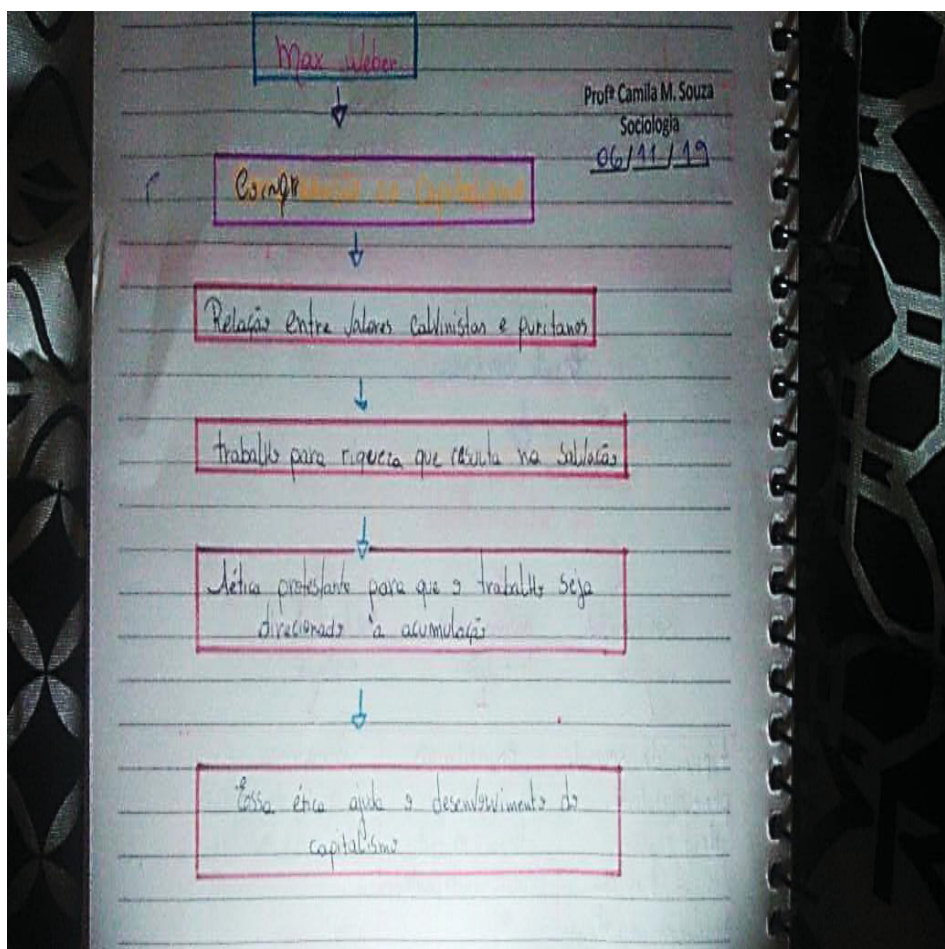 Max Weber
Profª Camila M. Souza
Sociologia
06/11/19
Compreensão do Capitalismo
Relação entre valores calvinistas e puritanos
trabalho para riqueza que resulta na salvação
A ética protestante para que o trabalho seja
direcionado à acumulação
Essa ética ajuda o desenvolvimento do
capitalismo